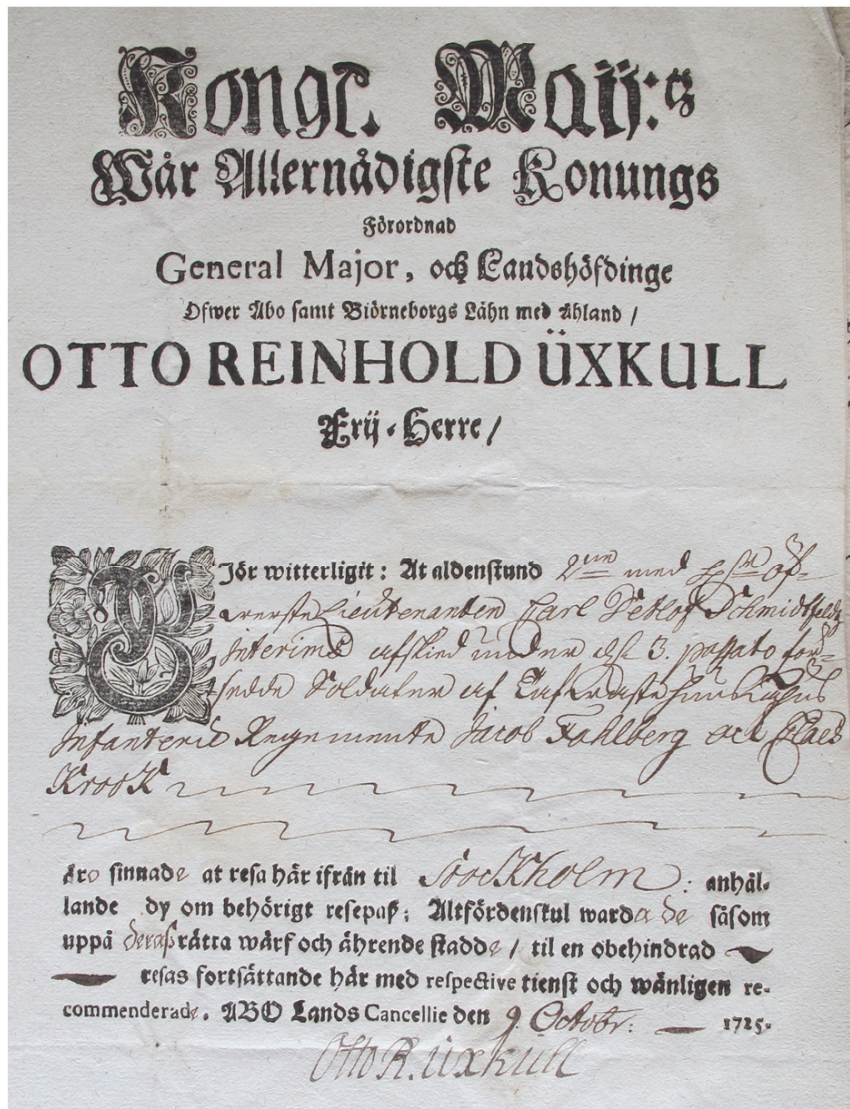 Kongl. Maij:s
Wår Allernådigste Konungs
Förordnad
General Major, och Landshöfdinge
Ofwer Åbo samt Biörneborgs Lähn med Åhland /
OTTO REINHOLD ÜXKULL
Frij-Herre /
GJör witterligit: At aldenstund 2ne med öf-
wersteLieutenanten Carl Detlof Schmidtfeldz
interims afskied under d. 3. passato för-
sedde Soldater af
Infanterie Regemente Jacob Fahlberg och Claes
Krook
äro sinnade at resa här ifrån til Stockholm: anhål-
lande dy om behörigt resepaß; Altfördenskul warda de såsom
uppå derasrätta wärf och ährende stadde / til en obehindrad
resas fortsättande här med respective tienst och wänligen re-
commenderade. ABO Lands Cancellie den 9 Octobr: 1725.
Otto R. Üxkull